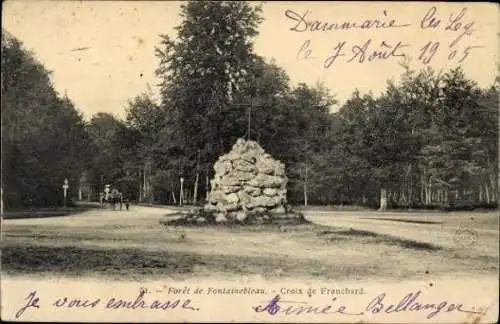 Dammarie les Lys
le 7 Août 1905
Forêt de Fontainebleau. - Croix de Franchard.
Je vous embrasse Aimée Bellanger